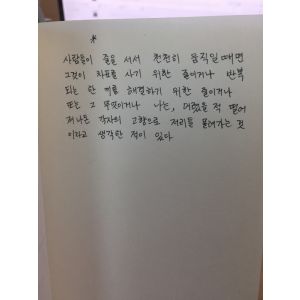 *
사람들이 줄을 서서 천천히 움직일 때면
그것이 차표를 사기 위한 줄이거나 반복
되는 한 끼를 해결하기 위한 줄이거나
또는 그 무엇이거나 나는, 어렸을 적 떨어
져나온 각자의 고향으로 저리들 돌아가는 것
이라고 생각한 적이 있다